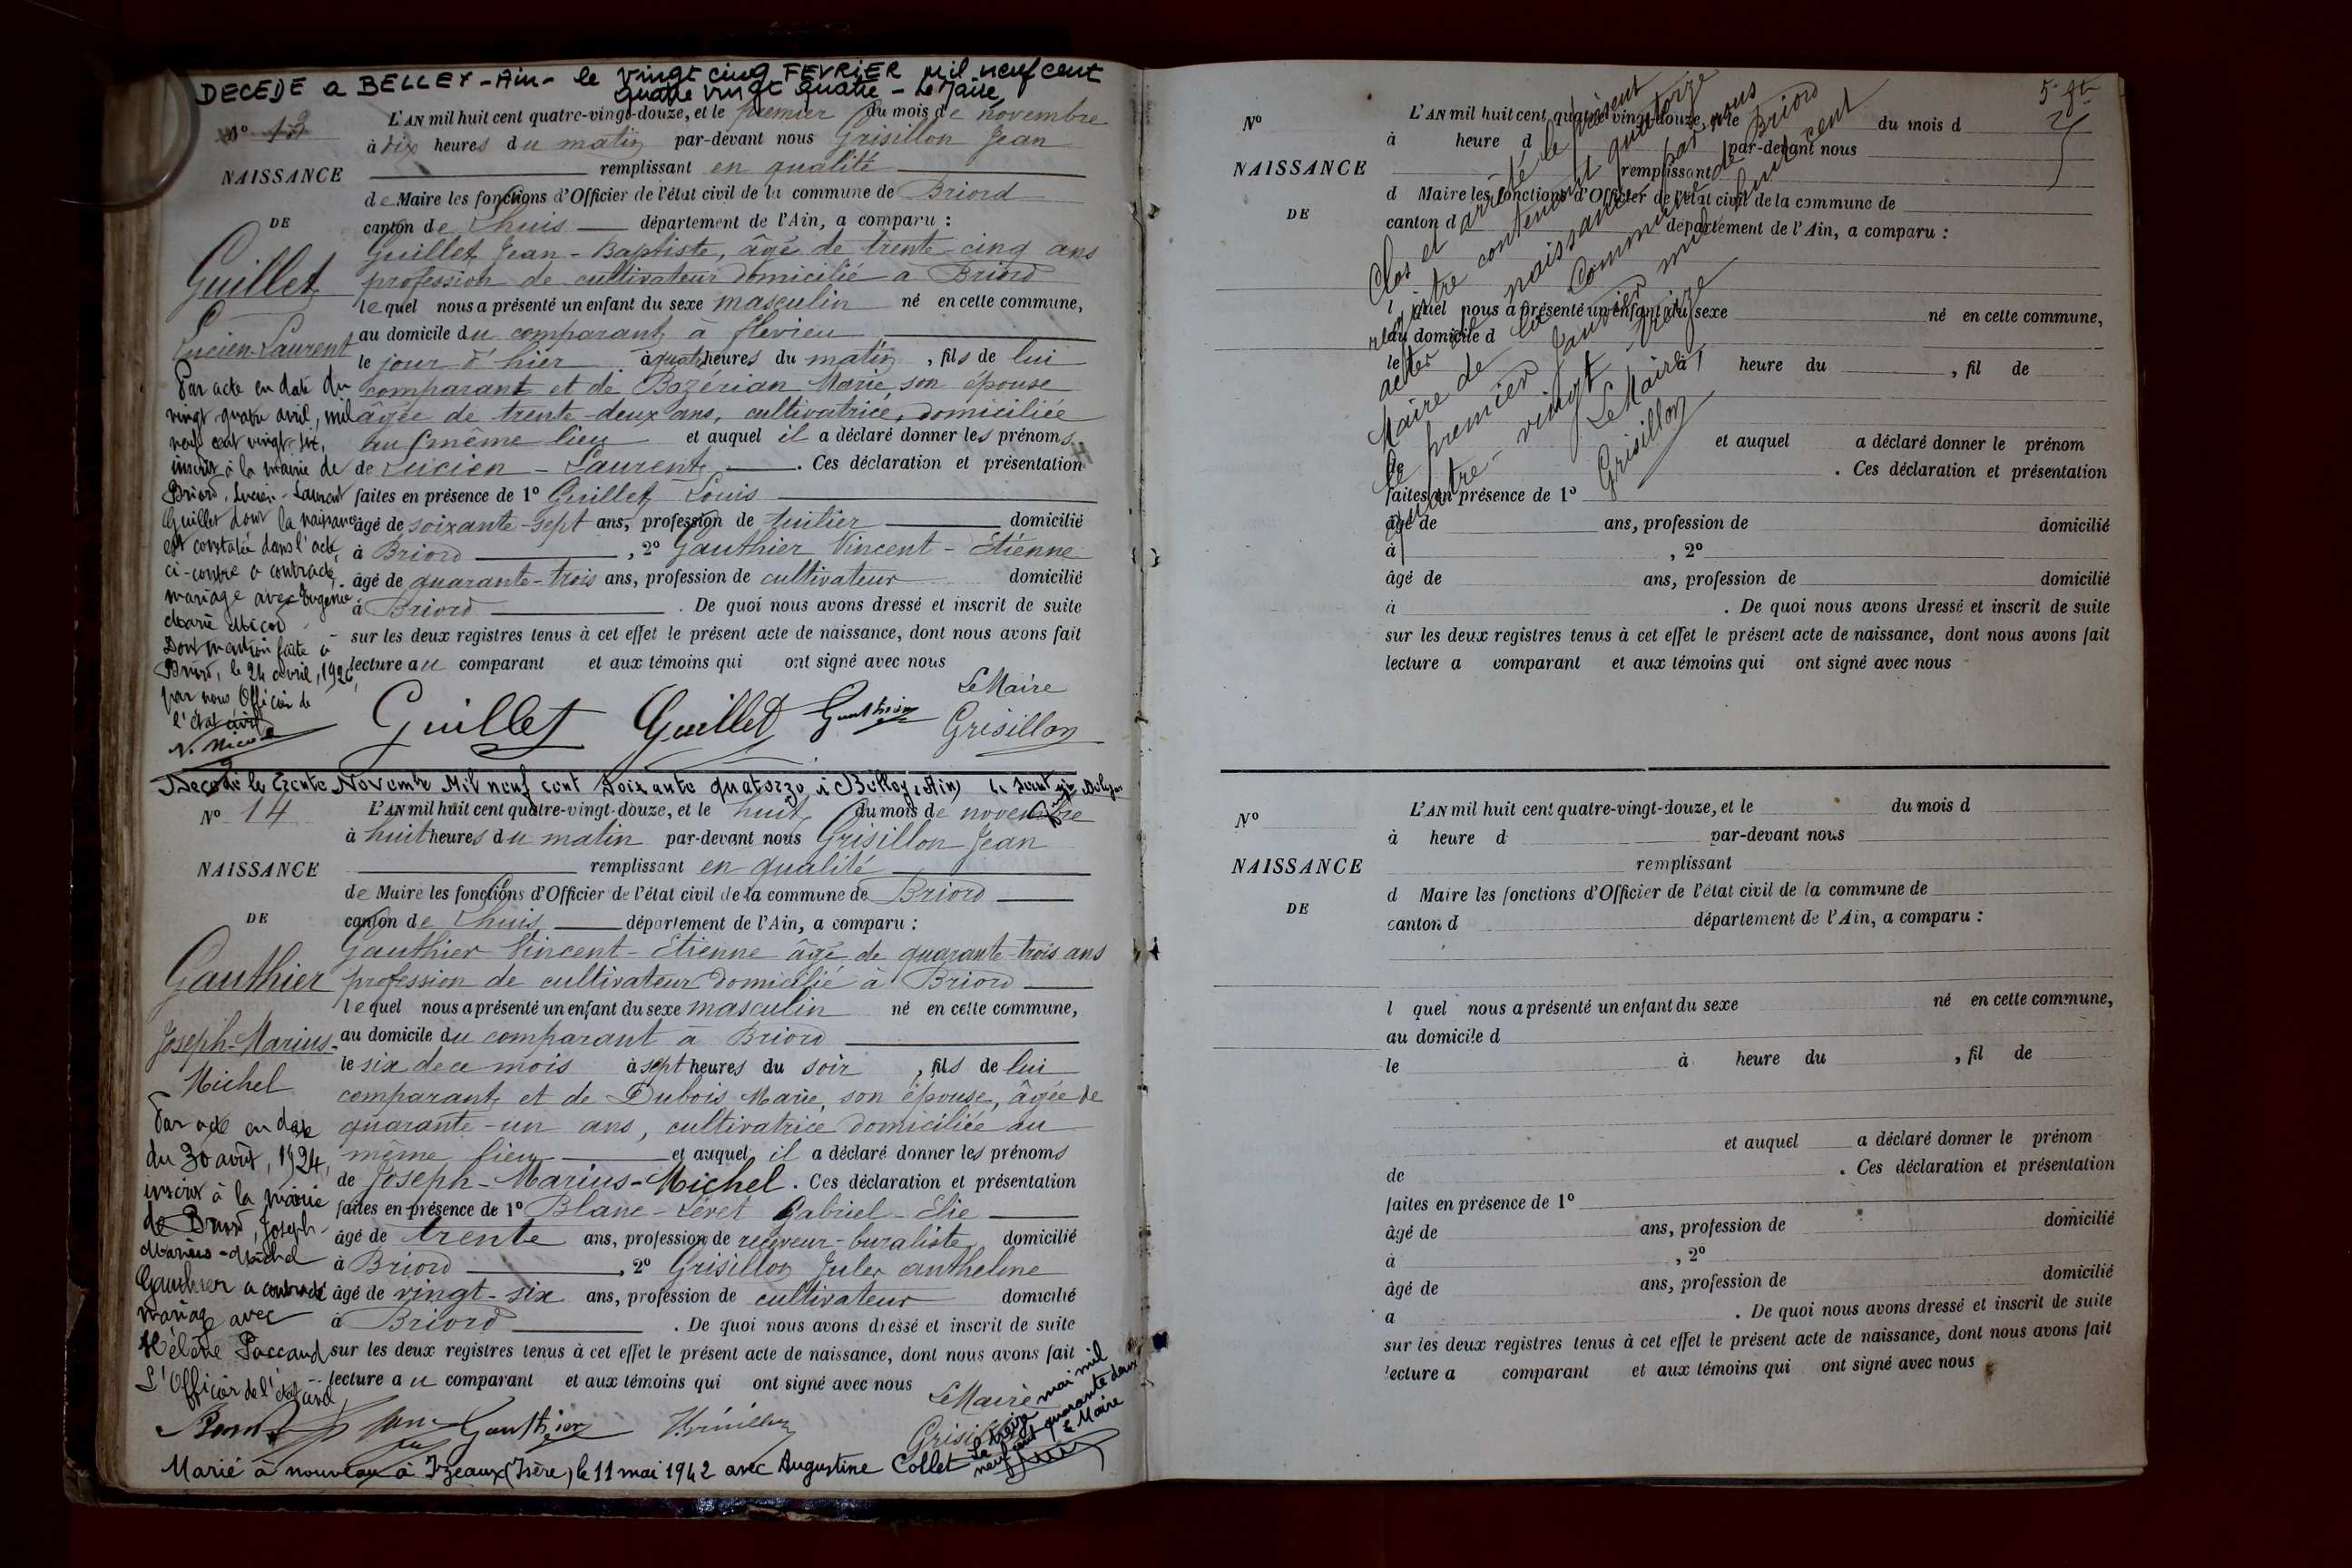 DECEDE a BELLEY - Ain - le vingt cinq FEVRIER mil neuf cent
quatre vingt quatre - Le Maire
N° 13
NAISSANCE
DE
Guillet
Lucien-Laurent
Par acte en date du
vingt quatre avril, mil
neuf cent vingt-six,
inscrit à la mairie de
Briord, Lucien-Laurent
Guillet dont la naissance
est constatée dans l'acte
ci-contre a contracté
mariage avec Eugénie
Marie Micod
Dont mention faite à
Briord, le 24 avril, 1926,
par nous Officier de
l'état civil
L'AN mil huit cent quatre-vingt-douze, et le premier du mois de novembre
à dix heures du matin par-devant nous Grisillon Jean
remplissant en qualité
de Maire les fonctions d'Officier de l'état civil de la commune de Briord
canton de Lhuis département de l'Ain, a comparu :
Guillet Jean-Baptiste, âgé de trente-cinq ans
profession de cultivateur domicilié à Briord
lequel nous a présenté un enfant du sexe masculin né en cette commune,
au domicile du comparant à flévieu
le jour d'hier à quatre heures du matin, fils de lui
comparant et de Bozérian Marie son épouse
âgée de trente-deux ans, cultivatrice, domiciliée
au même lieu et auquel il a déclaré donner les prénoms
de Lucien-Laurent. Ces déclaration et présentation
faites en présence de 1° Guillet Louis
âgé de soixante-sept ans, profession de tuilier domicilié
à Briord, 2° Gauthier Vincent-Etienne
âgé de quarante-trois ans, profession de cultivateur domicilié
à Briord. De quoi nous avons dressé et inscrit de suite
sur les deux registres tenus à cet effet le présent acte de naissance, dont nous avons fait
lecture au comparant et aux témoins qui ont signé avec nous
Le Maire
Guillet Guillet Gauthier Grisillon
Décédé le trente Novembre Mil neuf cent soixante quatorze à Belley (Ain)
N° 14
NAISSANCE
DE
Gauthier
Joseph-Marius-
Michel
Par acte en date
du 30 août, 1924,
inscrit à la mairie
de Briord, Joseph-
Marius-Michel
Gauthier a contracté
mariage avec
Hélène Paccaud
L'Officier de l'état civil
L'AN mil huit cent quatre-vingt-douze, et le huit du mois de novembre
à huit heures du matin par-devant nous Grisillon Jean
remplissant en qualité
de Maire les fonctions d'Officier de l'état civil de la commune de Briord
canton de Lhuis département de l'Ain, a comparu :
Gauthier Vincent-Etienne âgé de quarante-trois ans
profession de cultivateur domicilié à Briord
lequel nous a présenté un enfant du sexe masculin né en cette commune,
au domicile du comparant à Briord
le six de ce mois à sept heures du soir, fils de lui
comparant et de Dubois Marie, son épouse, âgée de
quarante-un ans, cultivatrice domiciliée au
même lieu et auquel il a déclaré donner les prénoms
de Joseph-Marius-Michel. Ces déclaration et présentation
faites en présence de 1° Blanc-Leret Gabriel-Elie
âgé de trente ans, profession de receveur-buraliste domicilié
à Briord, 2° Grisillon Jules anthelme
âgé de vingt-six ans, profession de cultivateur domicilié
à Briord. De quoi nous avons dressé et inscrit de suite
sur les deux registres tenus à cet effet le présent acte de naissance, dont nous avons fait
lecture au comparant et aux témoins qui ont signé avec nous
Le Maire
Gauthier Grisillon
Marié à nouveau à Izeaux (Isère) le 11 mai 1942 avec Augustine Collet
Le treize mai mil
neuf cent quarante deux
Le Maire
Clos et arrêté le présent
registre contenant quatorze
actes de naissance par nous
Maire de la commune de Briord
le premier Janvier mil huit cent
quatre-vingt-treize
Le Maire
Grisillon
N°
NAISSANCE
DE
L'AN mil huit cent quatre-vingt-douze, et le du mois d
à heure d par-devant nous
remplissant
d Maire les fonctions d'Officier de l'état civil de la commune de
canton d département de l'Ain, a comparu :
l quel nous a présenté un enfant du sexe né en cette commune,
au domicile d
le à heure du , fil de
et auquel a déclaré donner le prénom
. Ces déclaration et présentation
faites en présence de 1°
âgé de ans, profession de domicilié
à , 2°
âgé de ans, profession de domicilié
à . De quoi nous avons dressé et inscrit de suite
sur les deux registres tenus à cet effet le présent acte de naissance, dont nous avons fait
lecture a comparant et aux témoins qui ont signé avec nous
N°
NAISSANCE
DE
L'AN mil huit cent quatre-vingt-douze, et le du mois d
à heure d par-devant nous
remplissant
d Maire les fonctions d'Officier de l'état civil de la commune de
canton d département de l'Ain, a comparu :
l quel nous a présenté un enfant du sexe né en cette commune,
au domicile d
le à heure du , fil de
et auquel a déclaré donner le prénom
de . Ces déclaration et présentation
faites en présence de 1°
âgé de ans, profession de domicilié
à , 2°
âgé de ans, profession de domicilié
a . De quoi nous avons dressé et inscrit de suite
sur les deux registres tenus à cet effet le présent acte de naissance, dont nous avons fait
lecture a comparant et aux témoins qui ont signé avec nous